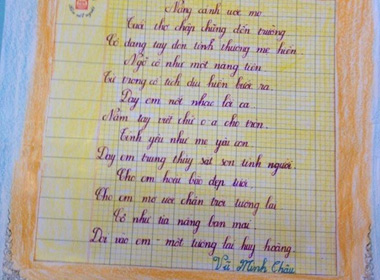 Nâng cánh ước mơ
Tuổi thơ chập chững đến trường
Cô dang tay đón tình thương mẹ hiền
Ngỡ cô như một nàng tiên
Từ trong cổ tích dịu hiền bước ra
Dạy em nốt nhạc lời ca
Nắm tay viết chữ o a cho tròn.
Tình yêu như mẹ yêu con
Dạy em trung thủy sắt son tình người.
Cho em hoài bão đẹp tươi.
Cho em mơ ước chân trời tương lai
Cô như tia nắng ban mai
Dọi vào em một tương lai huy hoàng.
Vũ Minh Châu